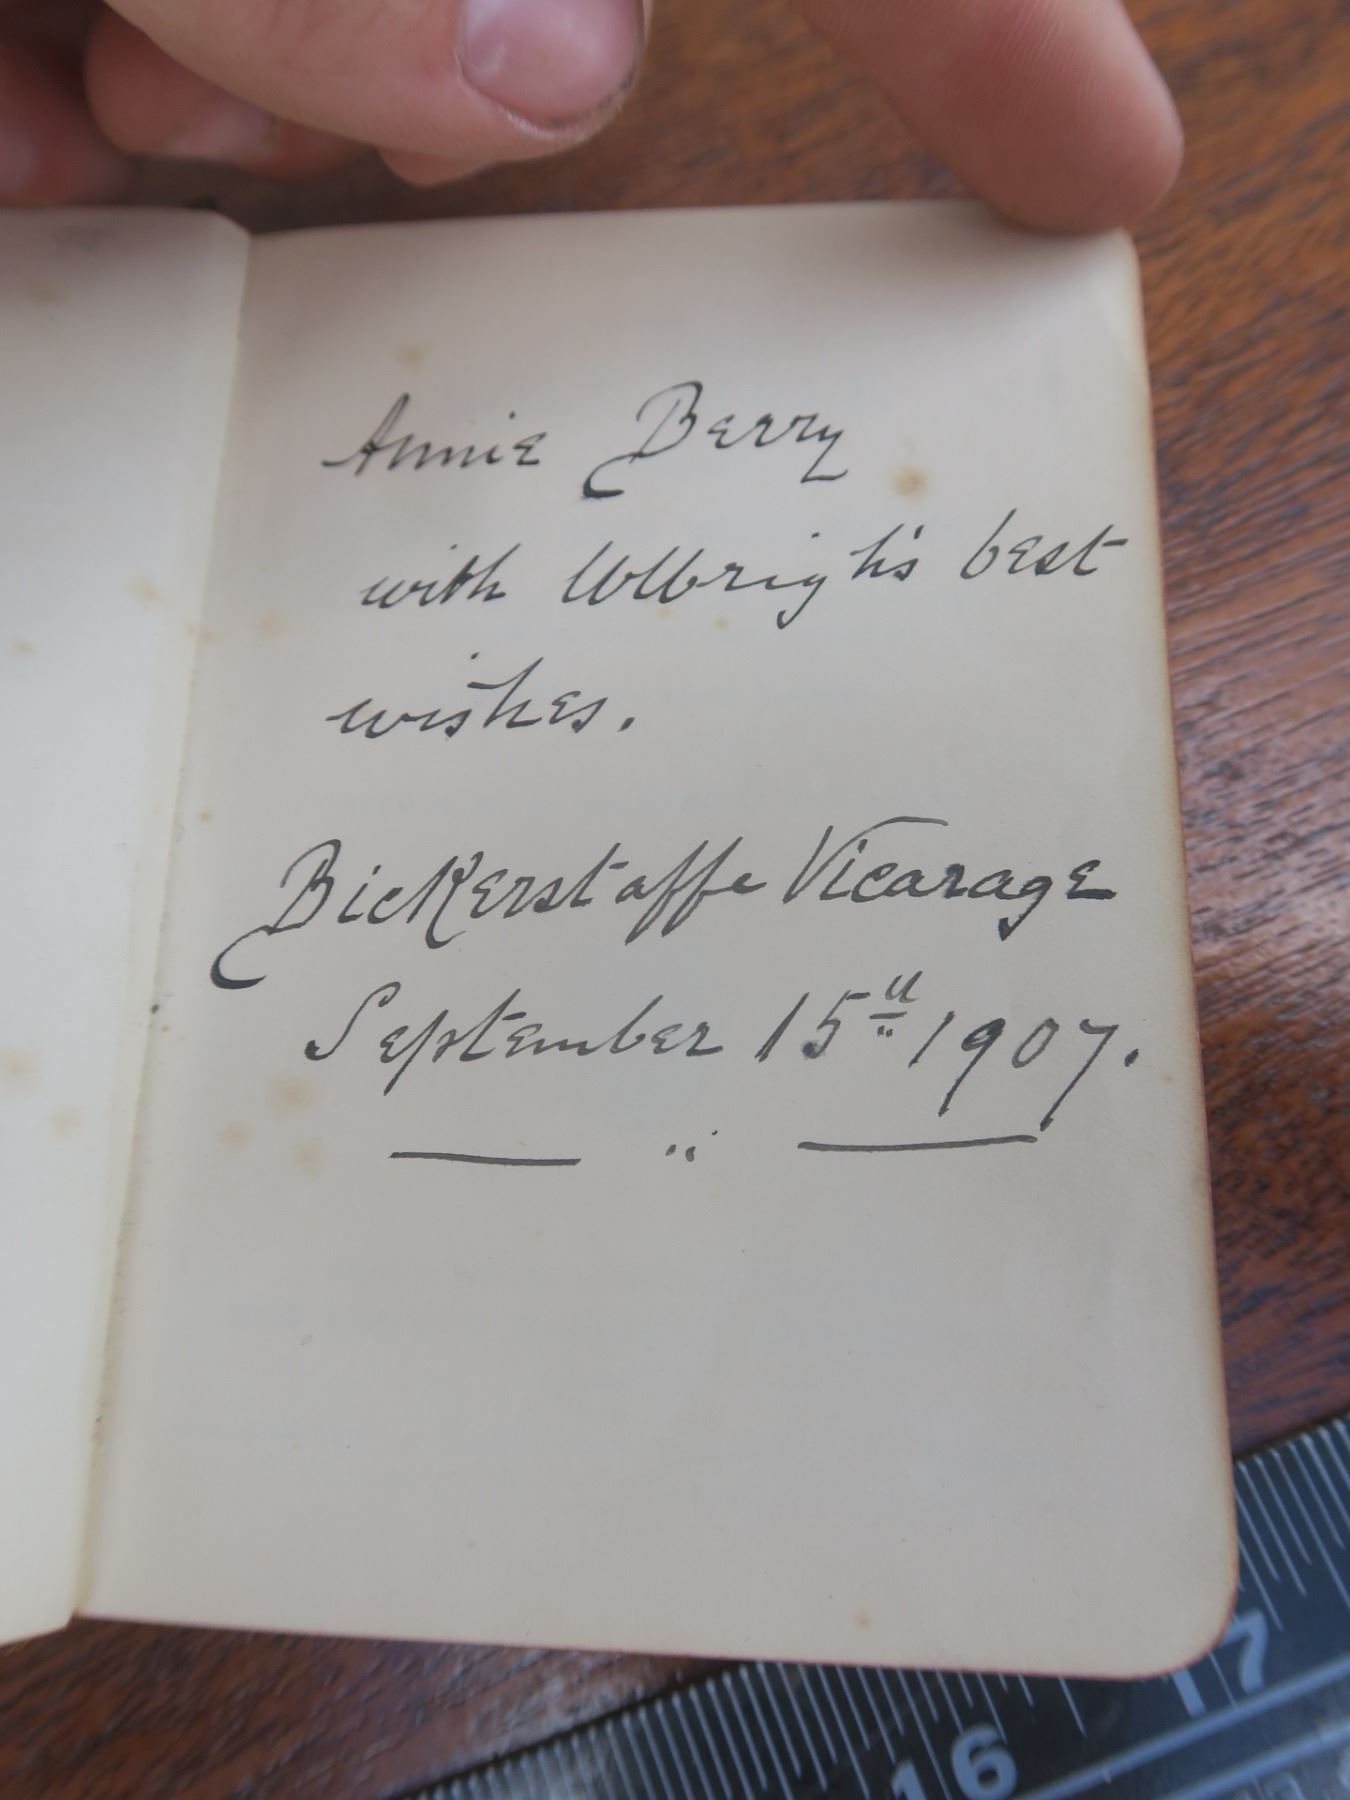 Annie Berry
with best
wishes.
Bickerstaffe Vicarage
September 15th 1907.
17
16